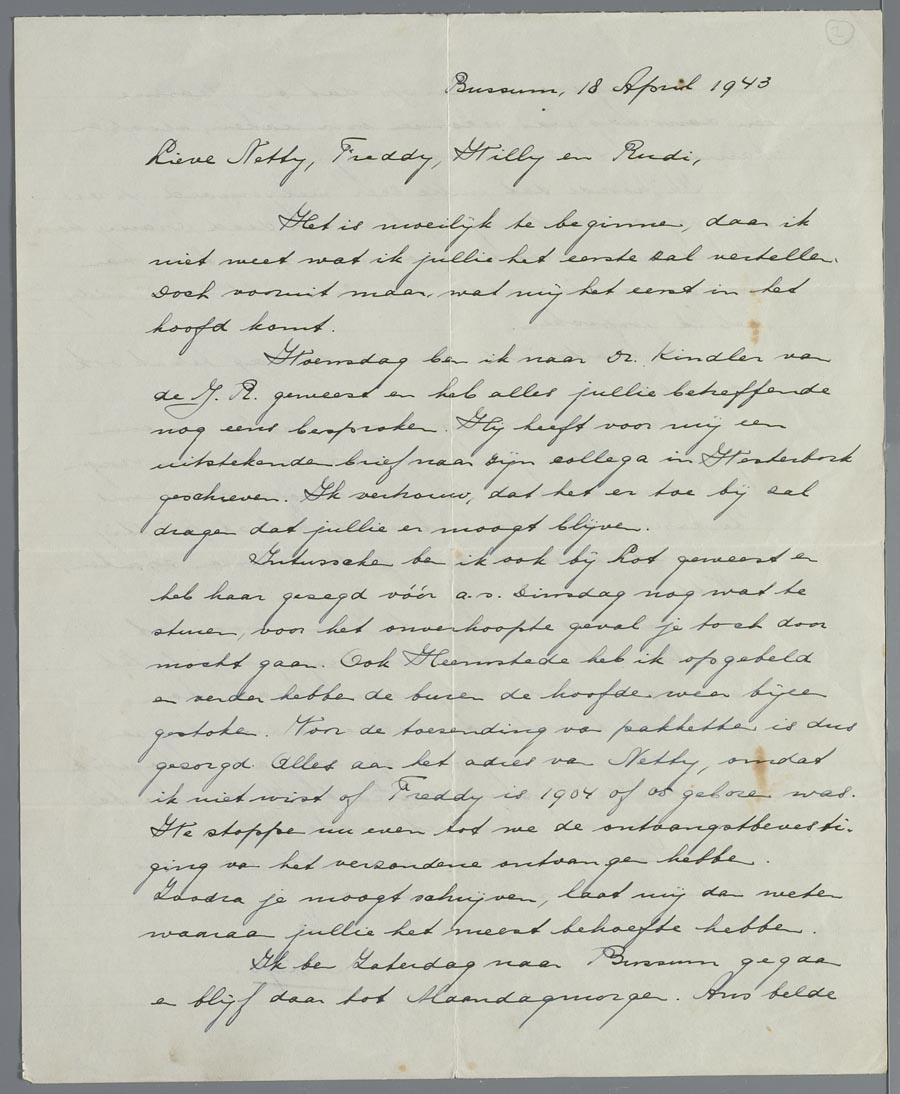 2
Bussum, 18 April 1943
Lieve Netty, Freddy, Willy en Rudi,
Het is moeilijk te beginnen, daar ik
niet weet wat ik jullie het eerste zal vertellen.
Doch vooruit maar, wat mij het eerst in het
hoofd komt.
Woensdag ben ik naar Dr. Kindler van
de J. R. geweest en heb alles jullie betreffende
nog eens besproken. Hij heeft voor mij een
uitstekenden brief naar zijn collega in Westerbork
geschreven. Ik vertrouw, dat het er toe bij zal
dragen dat jullie er moogt blijven.
Intusschen ben ik ook bij Lot geweest en
heb haar gezegd vóór a.s. Dinsdag nog wat te
sturen, voor het onverhoopte geval je toch door
mocht gaan. Ook Heemstede heb ik opgebeld
en verder hebben de buren de hoofden weer bijeen
gestoken. Voor de toezending van pakketten is dus
gezorgd. Alles aan het adres van Netty, omdat
ik niet wist of Freddy is 1904 of 05 geboren was.
We stoppen nu even tot we de ontvangstbevesti-
ging van het verzondene ontvangen hebben.
Zoodra je moogt schrijven, laat mij dan weten
waaraan jullie het meest behoefte hebben.
Ik ben Zaterdag naar Bussum gegaan
en blijf daar tot Maandagmorgen. Ans belde